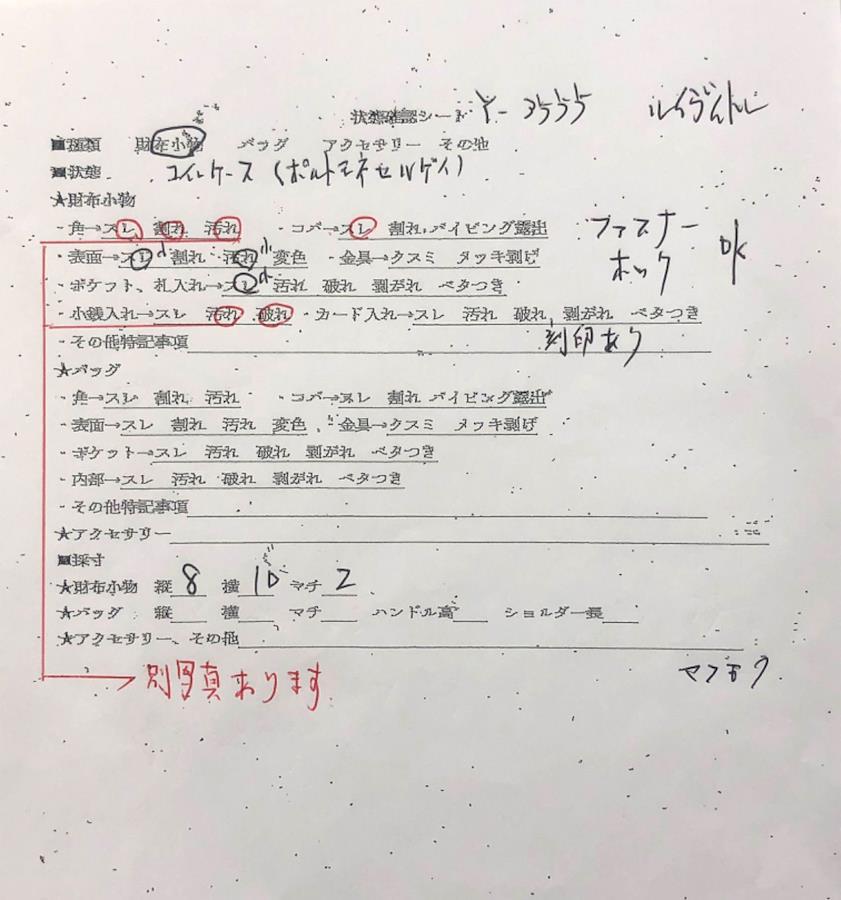 状態確認シート Y-3555 ルイヴィトン
■種類 財布小物 バッグ アクセサリー その他
■状態 コインケース(ポルトモネセルゲイ)
★財布小物
・角→スレ 割れ 汚れ ・コバ→スレ 割れ パイピング露出 ファスナー
・表面→スレ小 割れ 汚れ小 変色 ・金具→クスミ メッキ剥げ ホック OK
・ポケット、札入れ→スレ小 汚れ 破れ 剥がれ ベタつき
・小銭入れ→スレ 汚れ 破れ ・カード入れ→スレ 汚れ 破れ 剥がれ ベタつき
・その他特記事項 刻印あり
★バッグ
・角→スレ 割れ 汚れ ・コバ→スレ 割れ パイピング露出
・表面→スレ 割れ 汚れ 変色 ・金具→クスミ メッキ剥げ
・ポケット→スレ 汚れ 破れ 剥がれ ベタつき
・内部→スレ 汚れ 破れ 剥がれ ベタつき
・その他特記事項
★アクセサリー
■採寸
★財布小物 縦 8 横 10 マチ 2
★バッグ 縦 横 マチ ハンドル高 ショルダー長
★アクセサリー、その他
別写真あります